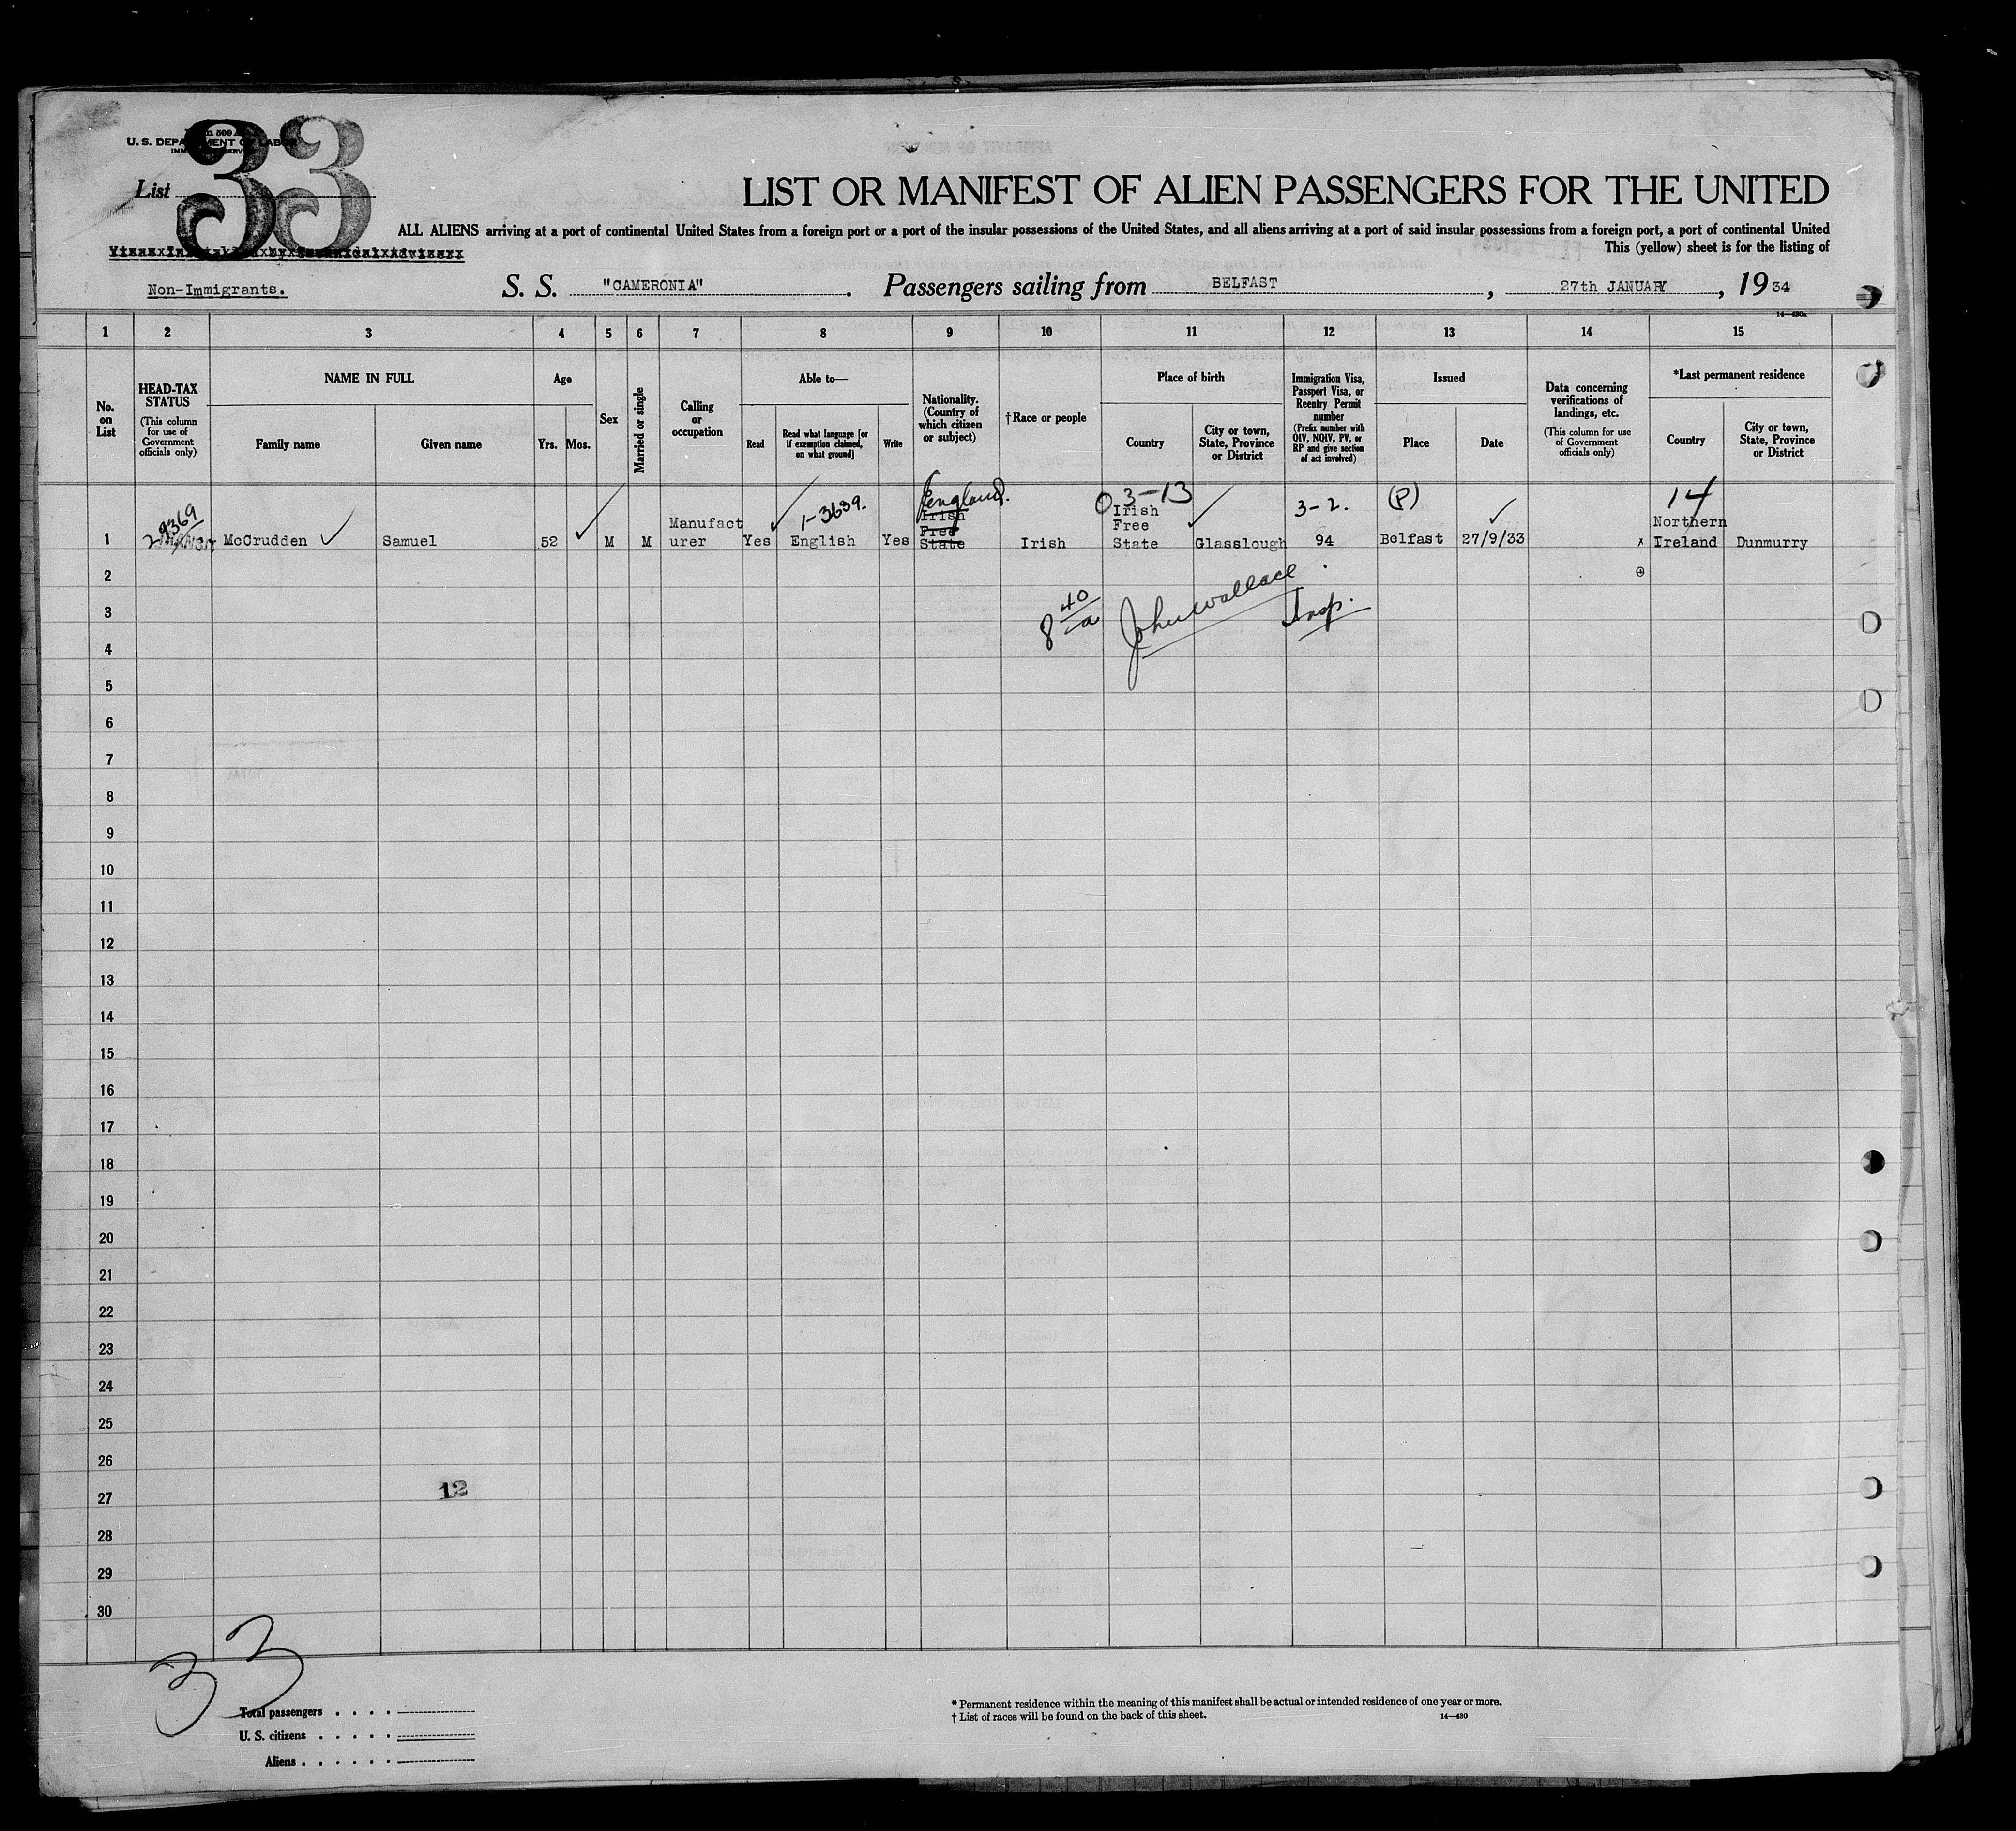 33
Form 500
U. S. DEPARTMENT OF LABOR
List
LIST OR MANIFEST OF ALIEN PASSENGERS FOR THE UNITED
ALL ALIENS arriving at a port of continental United States from a foreign port or a port of the insular possessions of the United States, and all aliens arriving at a port of said insular possessions from a foreign port, a port of continental United
This (yellow) sheet is for the listing of
Non-Immigrants.
S. S. "CAMERONIA". Passengers sailing from BELFAST, 27th JANUARY, 1934
14—430a
1 2 3 4 5 6 7 8 9 10 11 12 13 14 15
No. on List
HEAD-TAX STATUS
(This column for use of Government officials only)
NAME IN FULL
Family name
Given name
Age
Yrs.
Mos.
Sex
Married or single
Calling or occupation
Able to—
Read
Read what language [or if exemption claimed, on what ground]
Write
Nationality. (Country of which citizen or subject)
†Race or people
Place of birth
Country
City or town, State, Province or District
Immigration Visa, Passport Visa, or Reentry Permit number
(Prefix number with QIV, NQIV, PV, or RP and give section of act involved)
Issued
Place
Date
Data concerning verifications of landings, etc.
(This column for use of Government officials only)
*Last permanent residence
Country
City or town, State, Province or District
1
McCrudden
Samuel
52
M
M
Manufact
urer
Yes
1-3639.
English
Yes
England.
Irish
Free
State
Irish
03-13
Irish
Free
State
Glasslough
3-2.
94
(P)
Belfast
27/9/33
14
Northern
Ireland
Dunmurry
2
3
8 40/a
John Wallace
Insp.
4
5
6
7
8
9
10
11
12
13
14
15
16
17
18
19
20
21
22
23
24
25
26
27
12
28
29
30
33
Total passengers
U. S. citizens
Aliens
* Permanent residence within the meaning of this manifest shall be actual or intended residence of one year or more.
† List of races will be found on the back of this sheet.
14—430